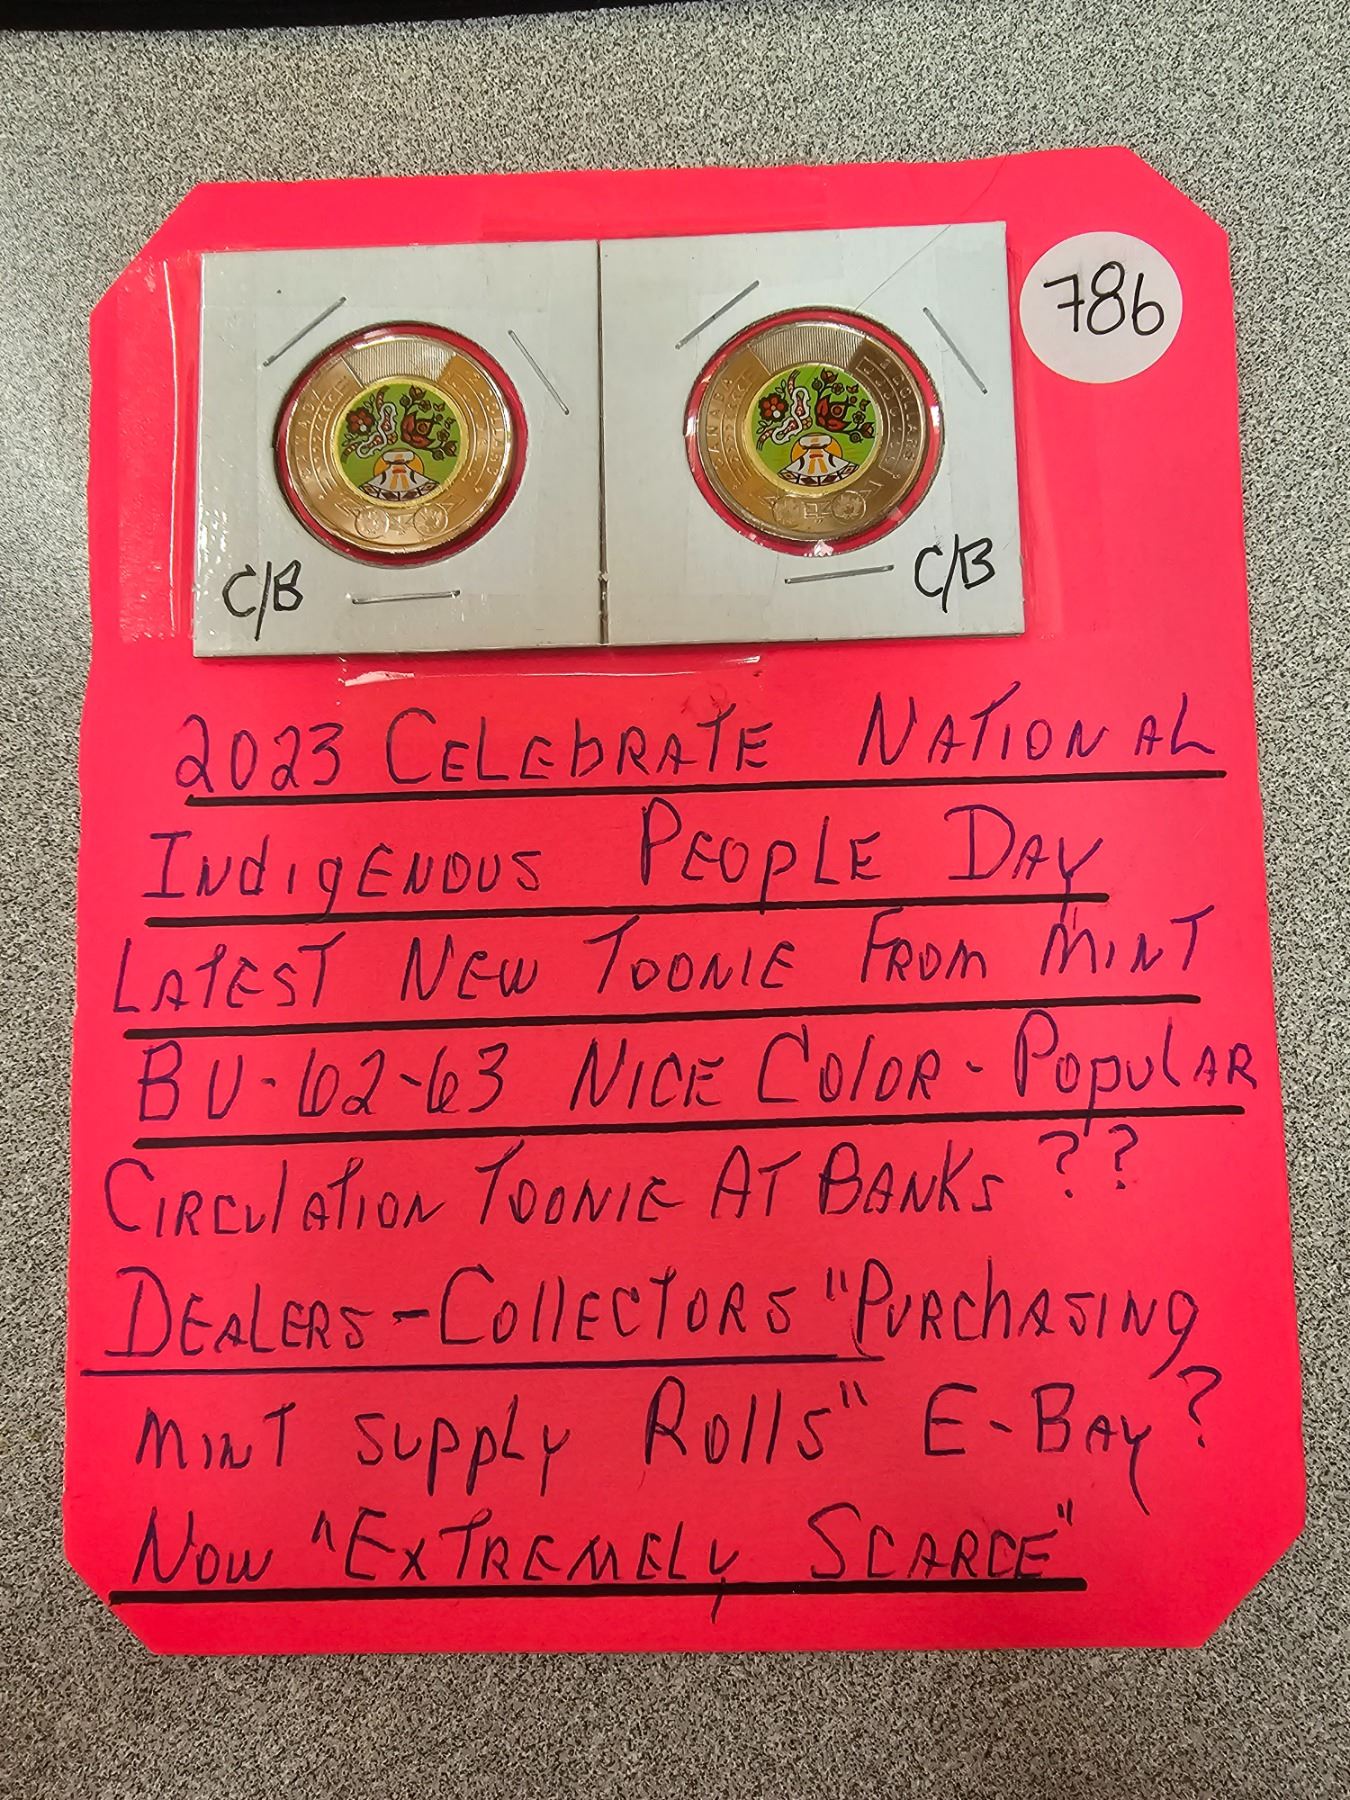 786
C/B
C/B
2023 CELEbRATE NATIONAL
INdIgENOUS PEOpLE DAY
LATEST NEW TOONIE FROM MINT
BU-62-63 NICE COlOR - POpUlAR
CIRCUlATION TOONIE AT BANKS ??
DEALERS-COllECTORS "PURChASING
MINT SUppLy ROllS" E-BAy?
NOW "ExTREMELy SCARCE"